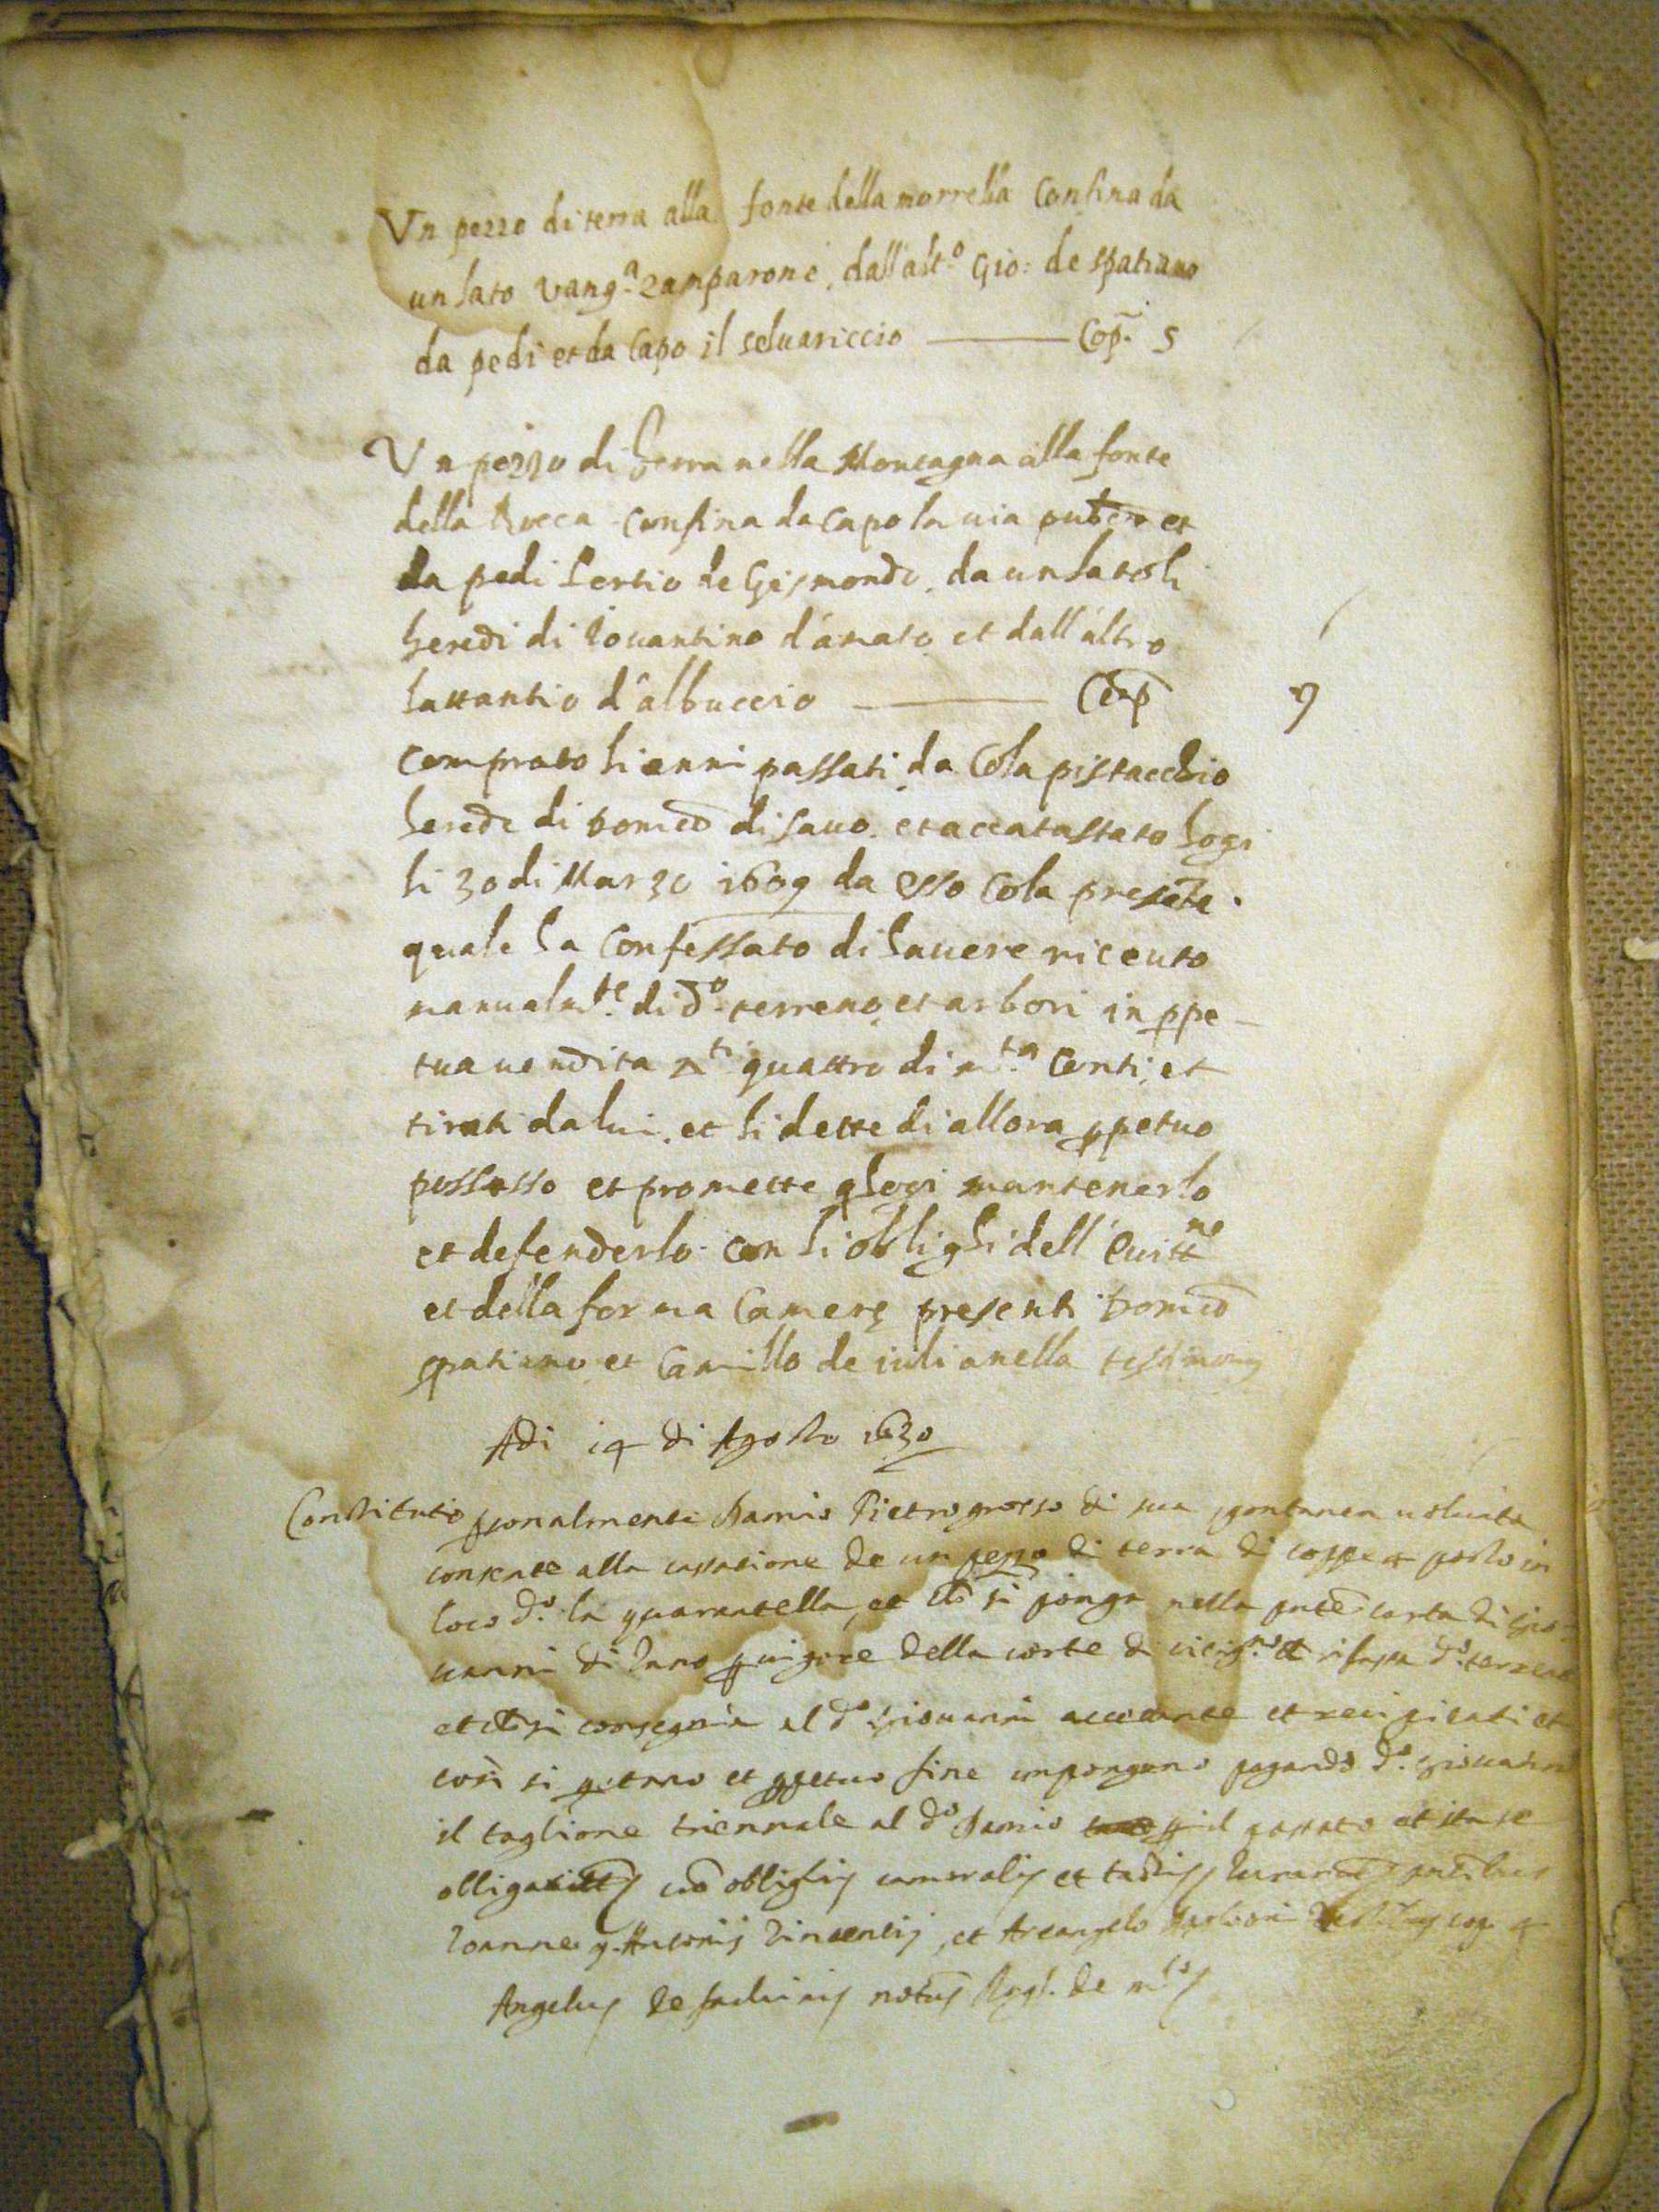 Un pezzo di terra alla fonte della morrella Confina da
un lato Vang.a Zamparone, dall'alt.o Gio: de spatiano
da pedi et da Capo il seluariccio Cop. 5
Un pezzo di terra nella Montagna alla fonte
della Rocca Confina da capo la uia et
da pedi tertio de Gismondo, da un lato li
heredi di Iouantino d'amato et dall'altro
lattantio d'albuccio Cop 9
Comprato li anni passati da Cola pistacchio
herede di Domco di sauo, et accatastato hogi
li 30 di Marzo 1609 da esso Cola presete
quale ha Confessato di hauere riceuto
manualm.te di d.o terreno et arbori in ppe-
tua uendita quattro di m.ta Conti, et
tirati da lui, et li dette di allora ppetuo
possesso et promette hogi mantenerlo
et defenderlo con li oblighi dell' Euitt.ne
et della forma Camere presenti Domco
spatiano et Camillo de iulianella testimonij
Adi 14 di Agosto 1630
Constituto psonalmente Damio Pietrogrosso di sua spontanea uoluntà
consente alla cassatione de un pezzo di terra di coppe 4 posto in
loco d.o la quarantella, et si ponga nella pnte carta di Gio-
uanni di p uigore della corte di d.o terreno
et si consegnia al d.o Giouanni accettante et
così si et ppetuo fine impongono pagando d.o Giouanni
il taglione triennale al d.o Damio il passato et ita se
obligauit cu oblighis cameralis et
Ioanne q. Antonij Vincentij, et Arcangelo
Angelus de notus Rog.s de